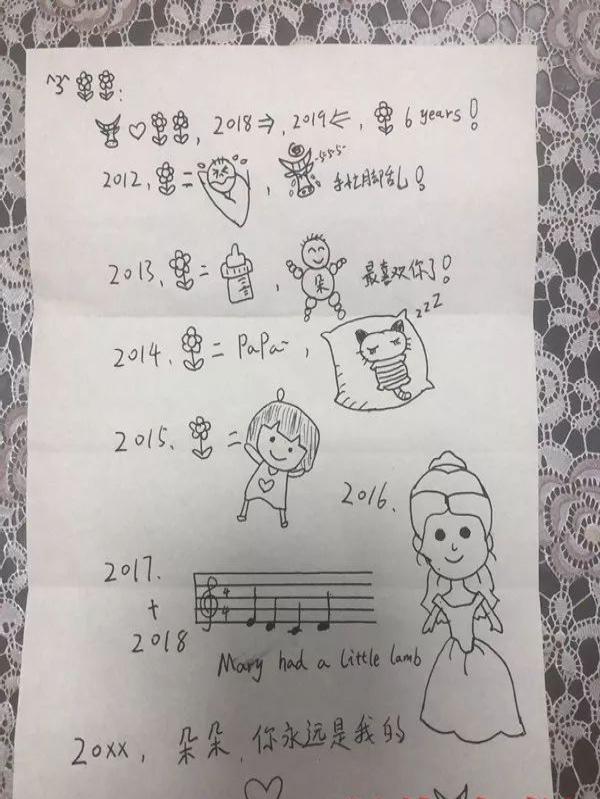 ^3^ :
, 2018⇒, 2019⇐, 6 years!
2012, = , 555~ 手忙脚乱!
2013, = , 朵 最喜欢你了!
2014, = PaPa~, zzz
2015, =
2016.
2017.
4
4
+
2018
Mary had a little lamb
20xx, 朵朵,你永远是我的